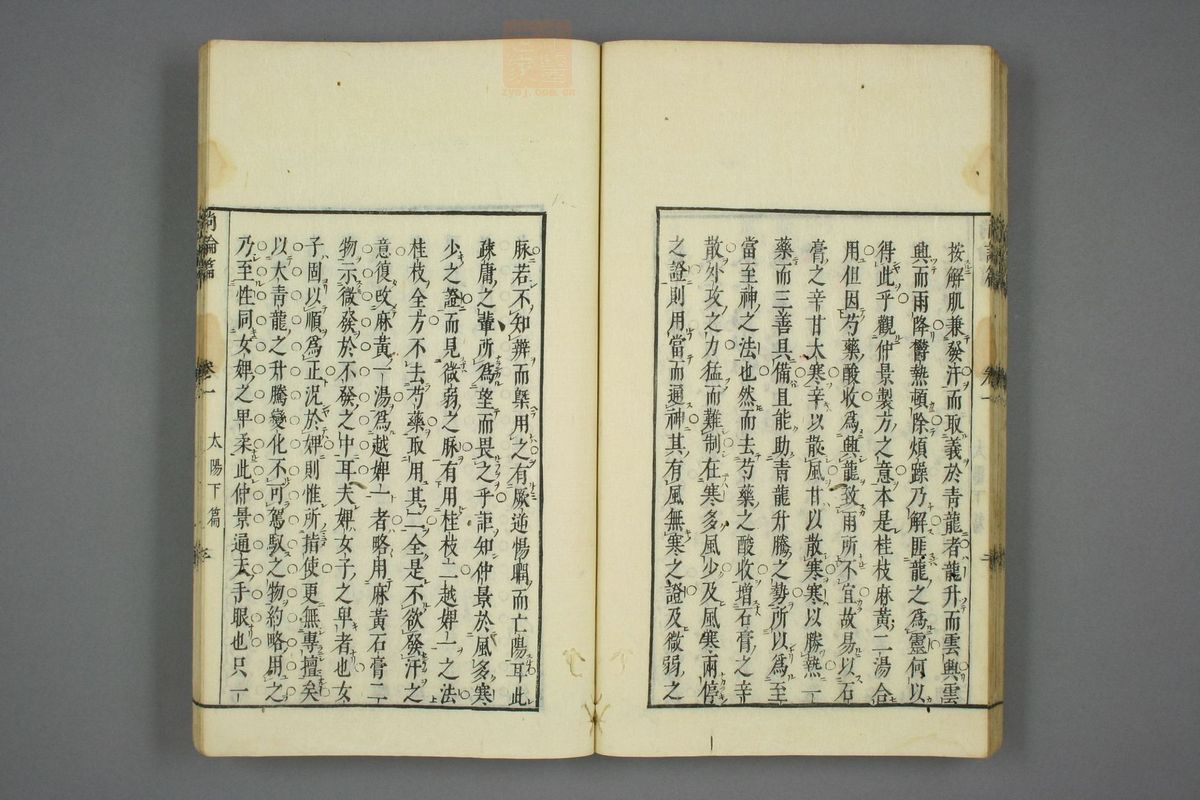 按解肌兼發汗而取義於青龍者龍升而雲興雲
興而雨降鬱熱頓除煩躁乃解匪龍之爲靈何以
得此乎觀仲景製方之意本是桂枝麻黃二湯合
用但因芍藥酸收爲興龍致雨所不宜故易以石
膏之辛甘大寒辛以散風甘以散寒寒以勝熱一
藥而三善具備且能助青龍升騰之勢所以爲至
當至神之法也然而去芍藥之酸收增石膏之辛
散外攻之力猛而難制在寒多風少及風寒兩停
之證則用當而通神其有風無寒之證及微弱之
脉若不知辨而槩用之有厥逆惕瞤而亡陽耳此
疎庸之輩所爲望而畏之乎詎知仲景於風多寒
少之證而見微弱之脉有用桂枝二越婢一之法
桂枝全方不去芍藥取用其二全是不欲發汗之
意復改麻黃一湯爲越婢一者略用麻黃石膏二
物示微發於不發之中耳夫婢女子之卑者也女
子固以順爲正況於婢則惟所指使更無專擅矣
以大青龍之升騰變化不可駕馭之物約略用之
乃至性同女婢之卑柔此仲景通天手眼也只一
尚論篇
卷一
太陽下篇
zysj.com.cn